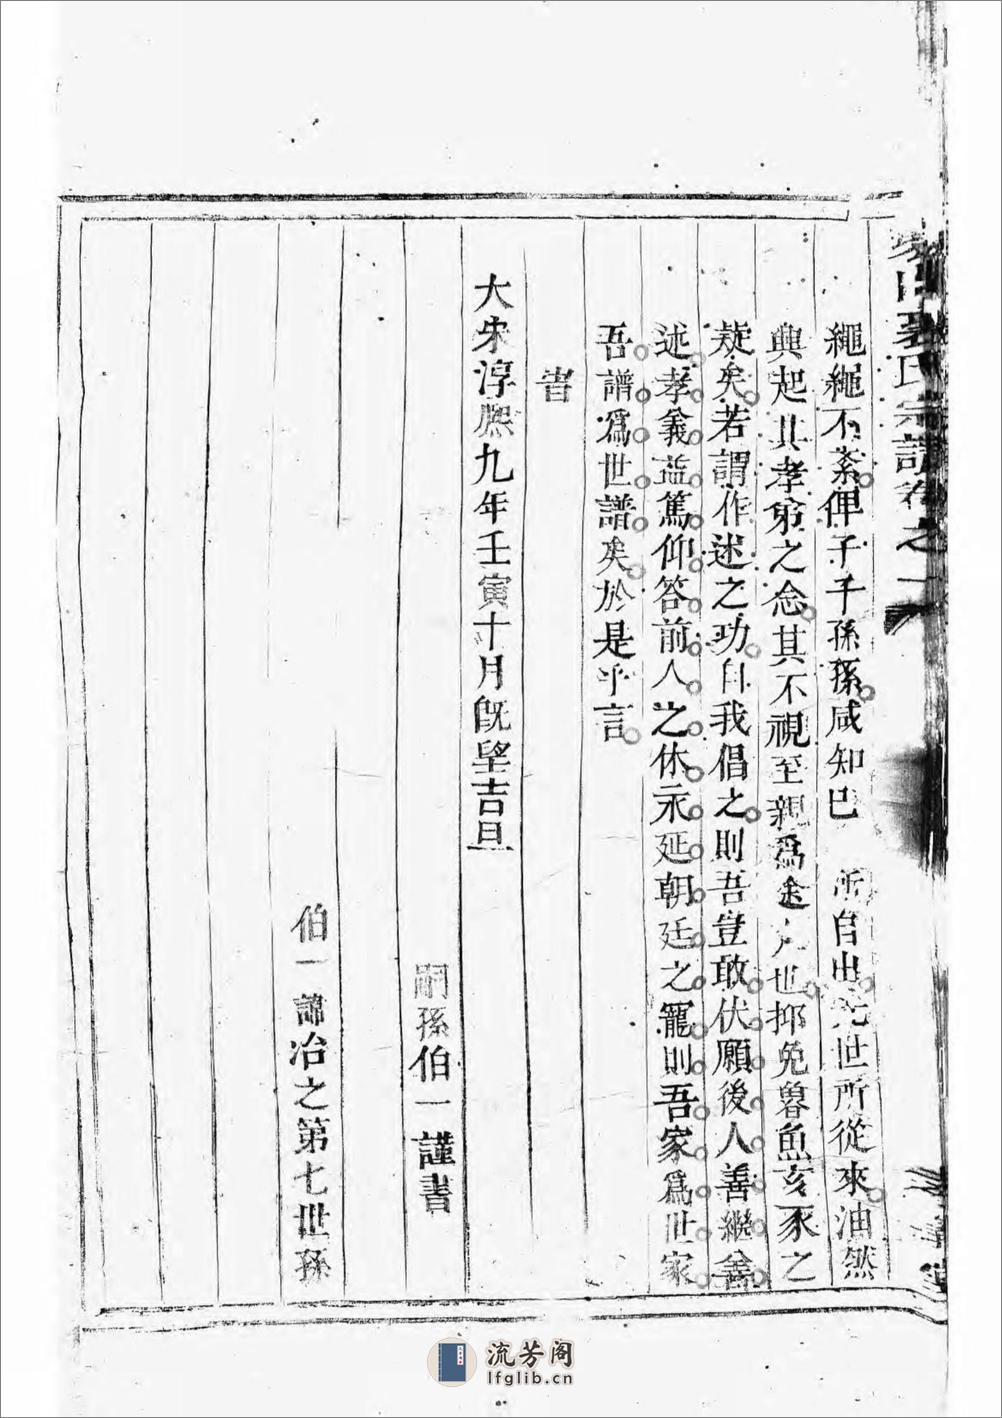 氏宗譜卷之一
繩繩不紊俾子子孫孫咸知已 所自出先世所從來油然
興起其孝弟之念其不視至親爲途人也抑免魯魚亥豕之
疑矣若謂作述之功自我倡之則吾豈敢伏願後人善繼善
述孝義益篤仰答前人之休永延朝廷之寵則吾家爲世家
吾譜爲世譜矣於是乎言
旹
大宋淳熙九年壬寅十月旣望吉旦
嗣孫伯一謹書
伯一諦冶之第七世孫
流芳阁
lfglib.cn